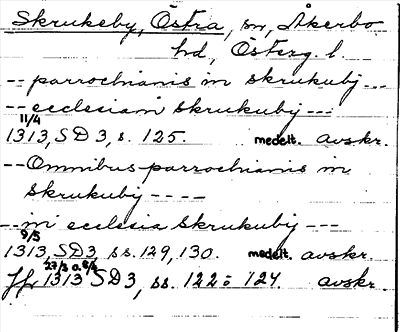 Skrukeby, Östra, sn, Åkerbo
hd, Österg. l.
-- parrochianis in skrukubij ---
-- ecclesiam skrukubij ---
11/4
1313, SD3, s. 125. medelt. avskr.
-- Omnibus parrochianis in
skrukubij ----
-- in ecclesia skrukubij ---
9/5
1313, SD3, ss. 129, 130. medelt. avskr.
27/3 o. 8/4
Jfr 1313 SD3, ss. 122- 124. avskr.